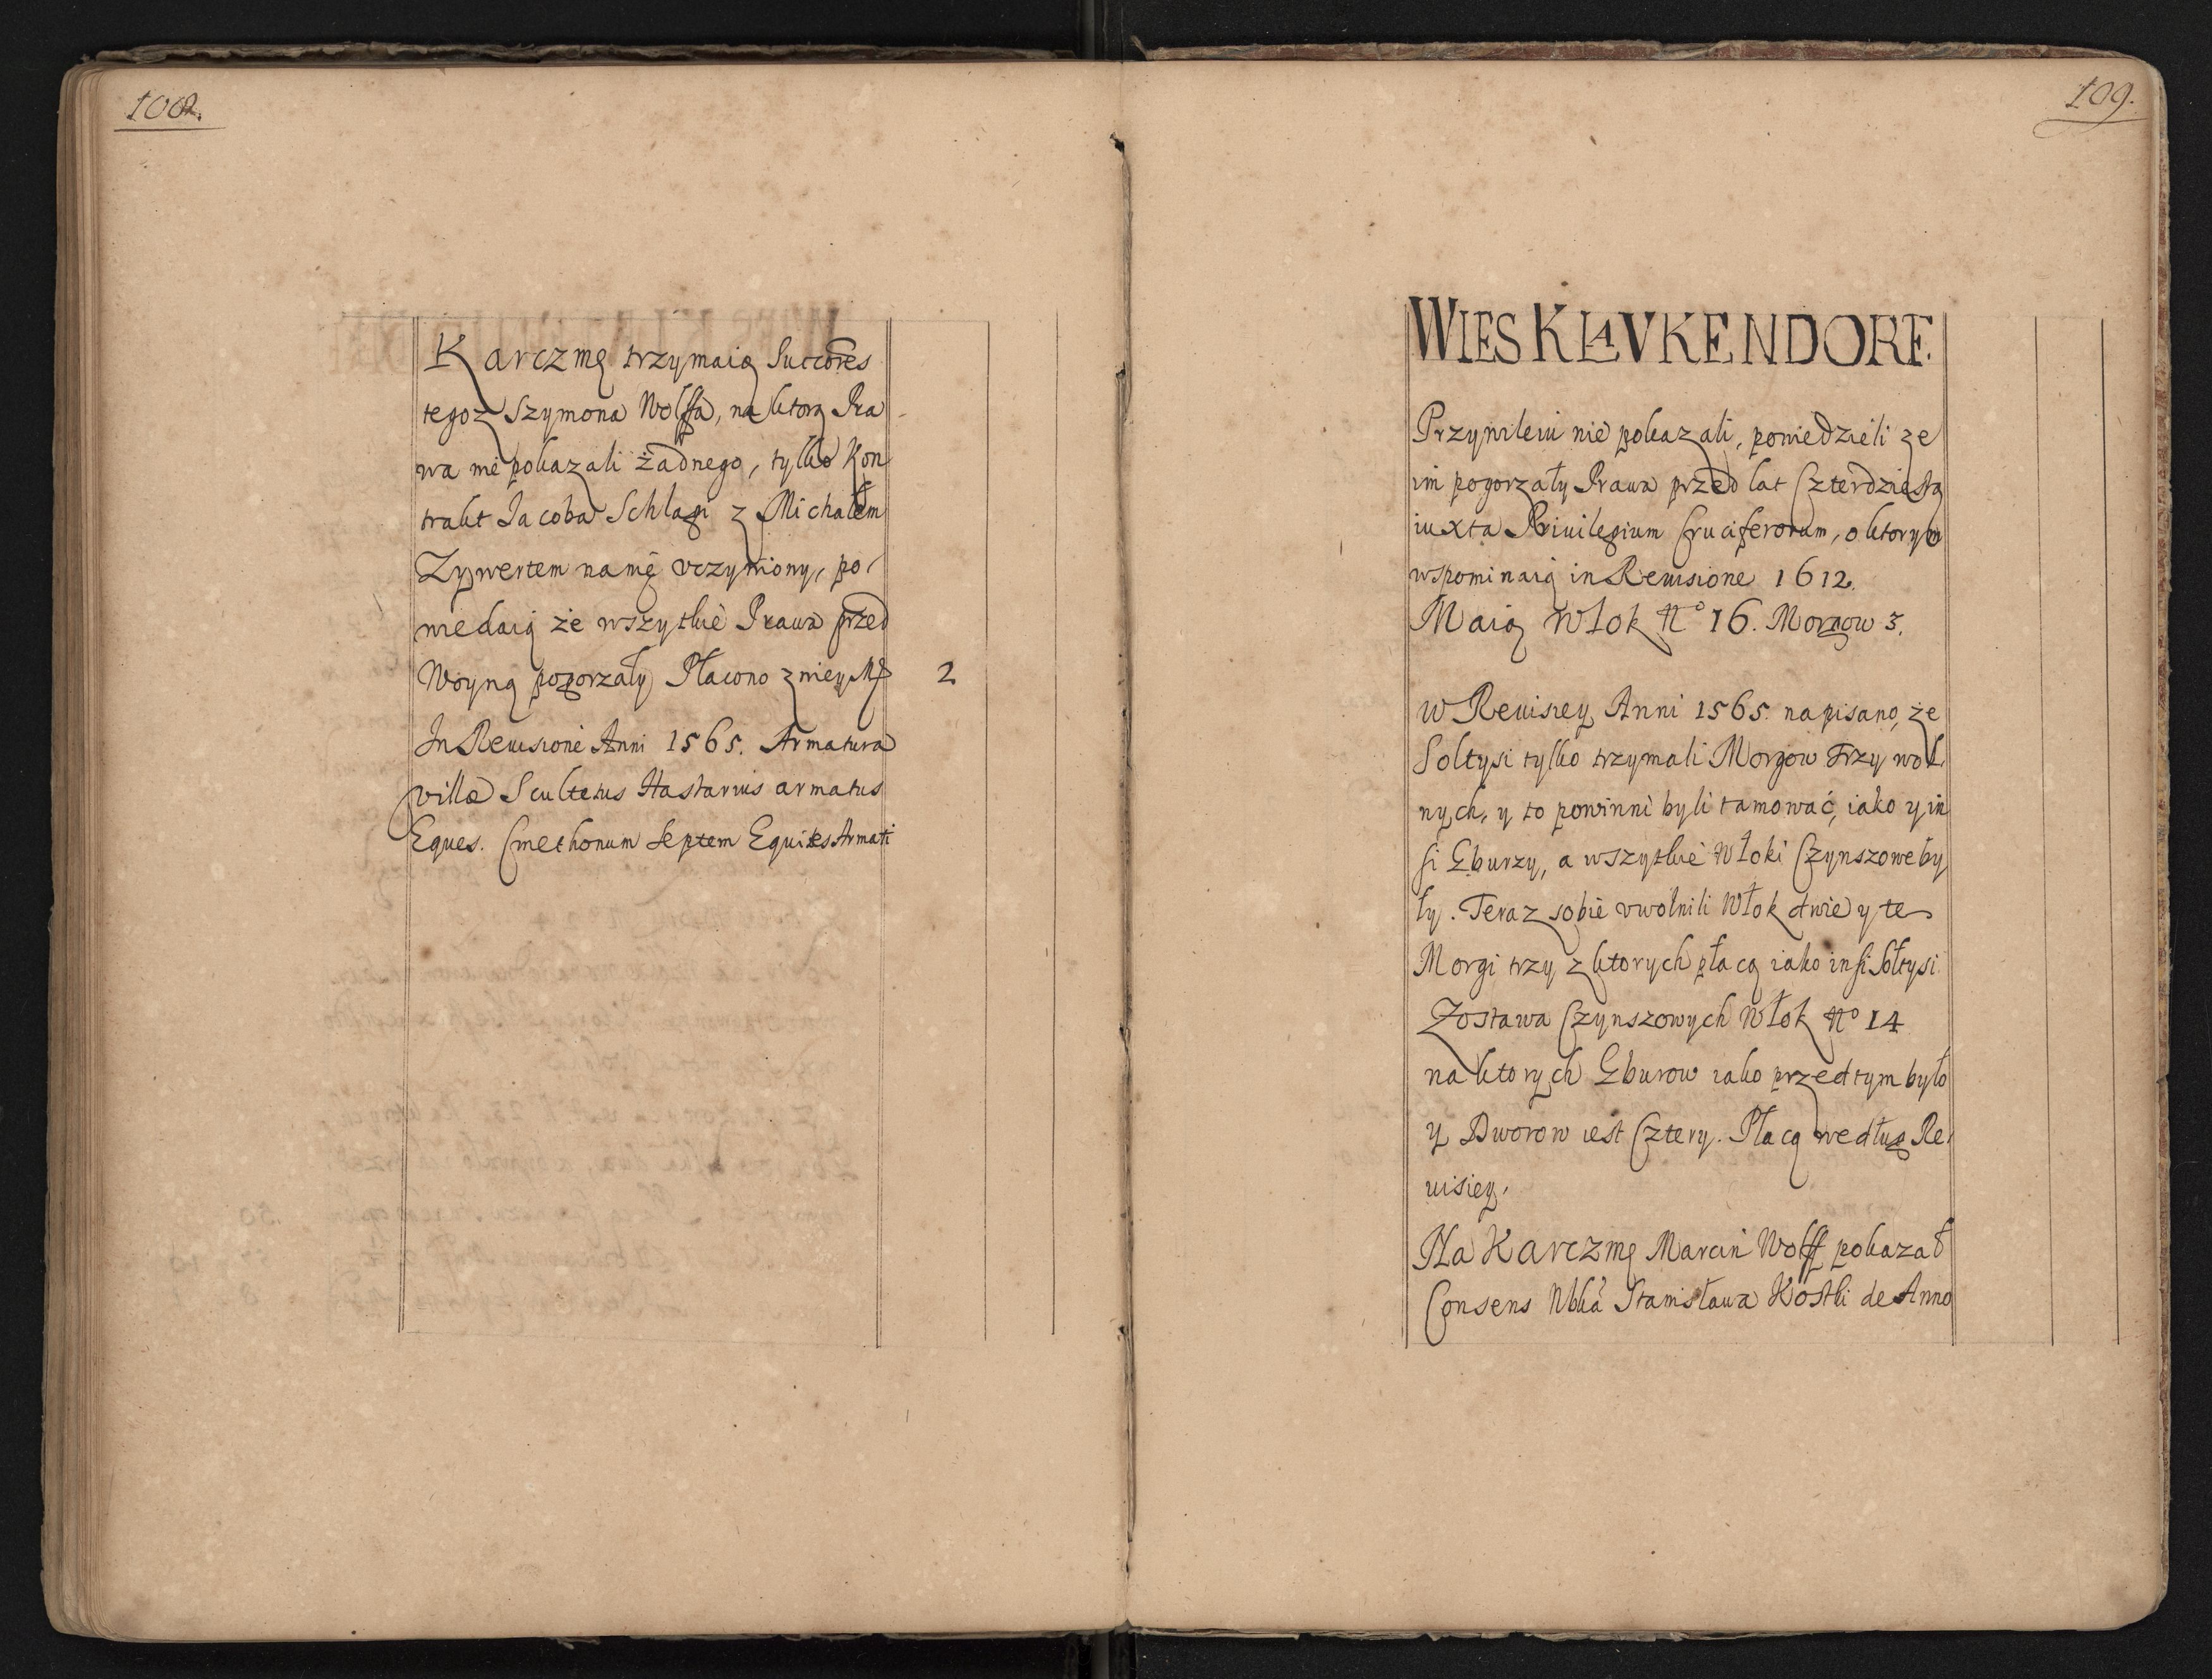 108.
Karczmę trzymaią Succōres
tegoz Szymona Wolffa, na ktorą Pra
wa nie pokazali żadnego, tylko Kon
trakt Jacoba Schlagi z Michałem
Zywertem na nię vczyniony, po,
wiedaią że wszytkie Prawa przed
Woyną pogorzały Płacono z niey M 2
In Revisione Anni 1565. Armatura
villæ Scultetus Hastarius armatus
Eques. Cmethonum Septem Equites Armati
109.
WIES KLAVKENDORF.
Przywileiu nie pokazali, powiedzieli ze
im pogorzały Prawa przed lat Czterdziestą
iuxta Priuilegium Cruciferorum, o ktorym
wspominaią in Reuisione 1612.
Maią Włok No 16. Morgow 3.
W Reuisiey Anni 1565. napisano, że
Soltysi tylko trzymali Morgow Trzy wol,
nych, y to powinni byli tamować, iako y in
si Gburzy, a wszytkie Włoki Czynszowe by
ły. Teraz sobie vwolnili Włok dwie y te
Morgi trzy z ktorych płacą iako insi Sołtysi.
Zostawa Czynszowych Włok No 14
na ktorych Gburow iako przedtym było
y Dworow iest Cztery. Płacą według Re,
uisiey.
Na Karczmę Marcin Wolff pokazał
Consens Stanisława Kostki de Anno